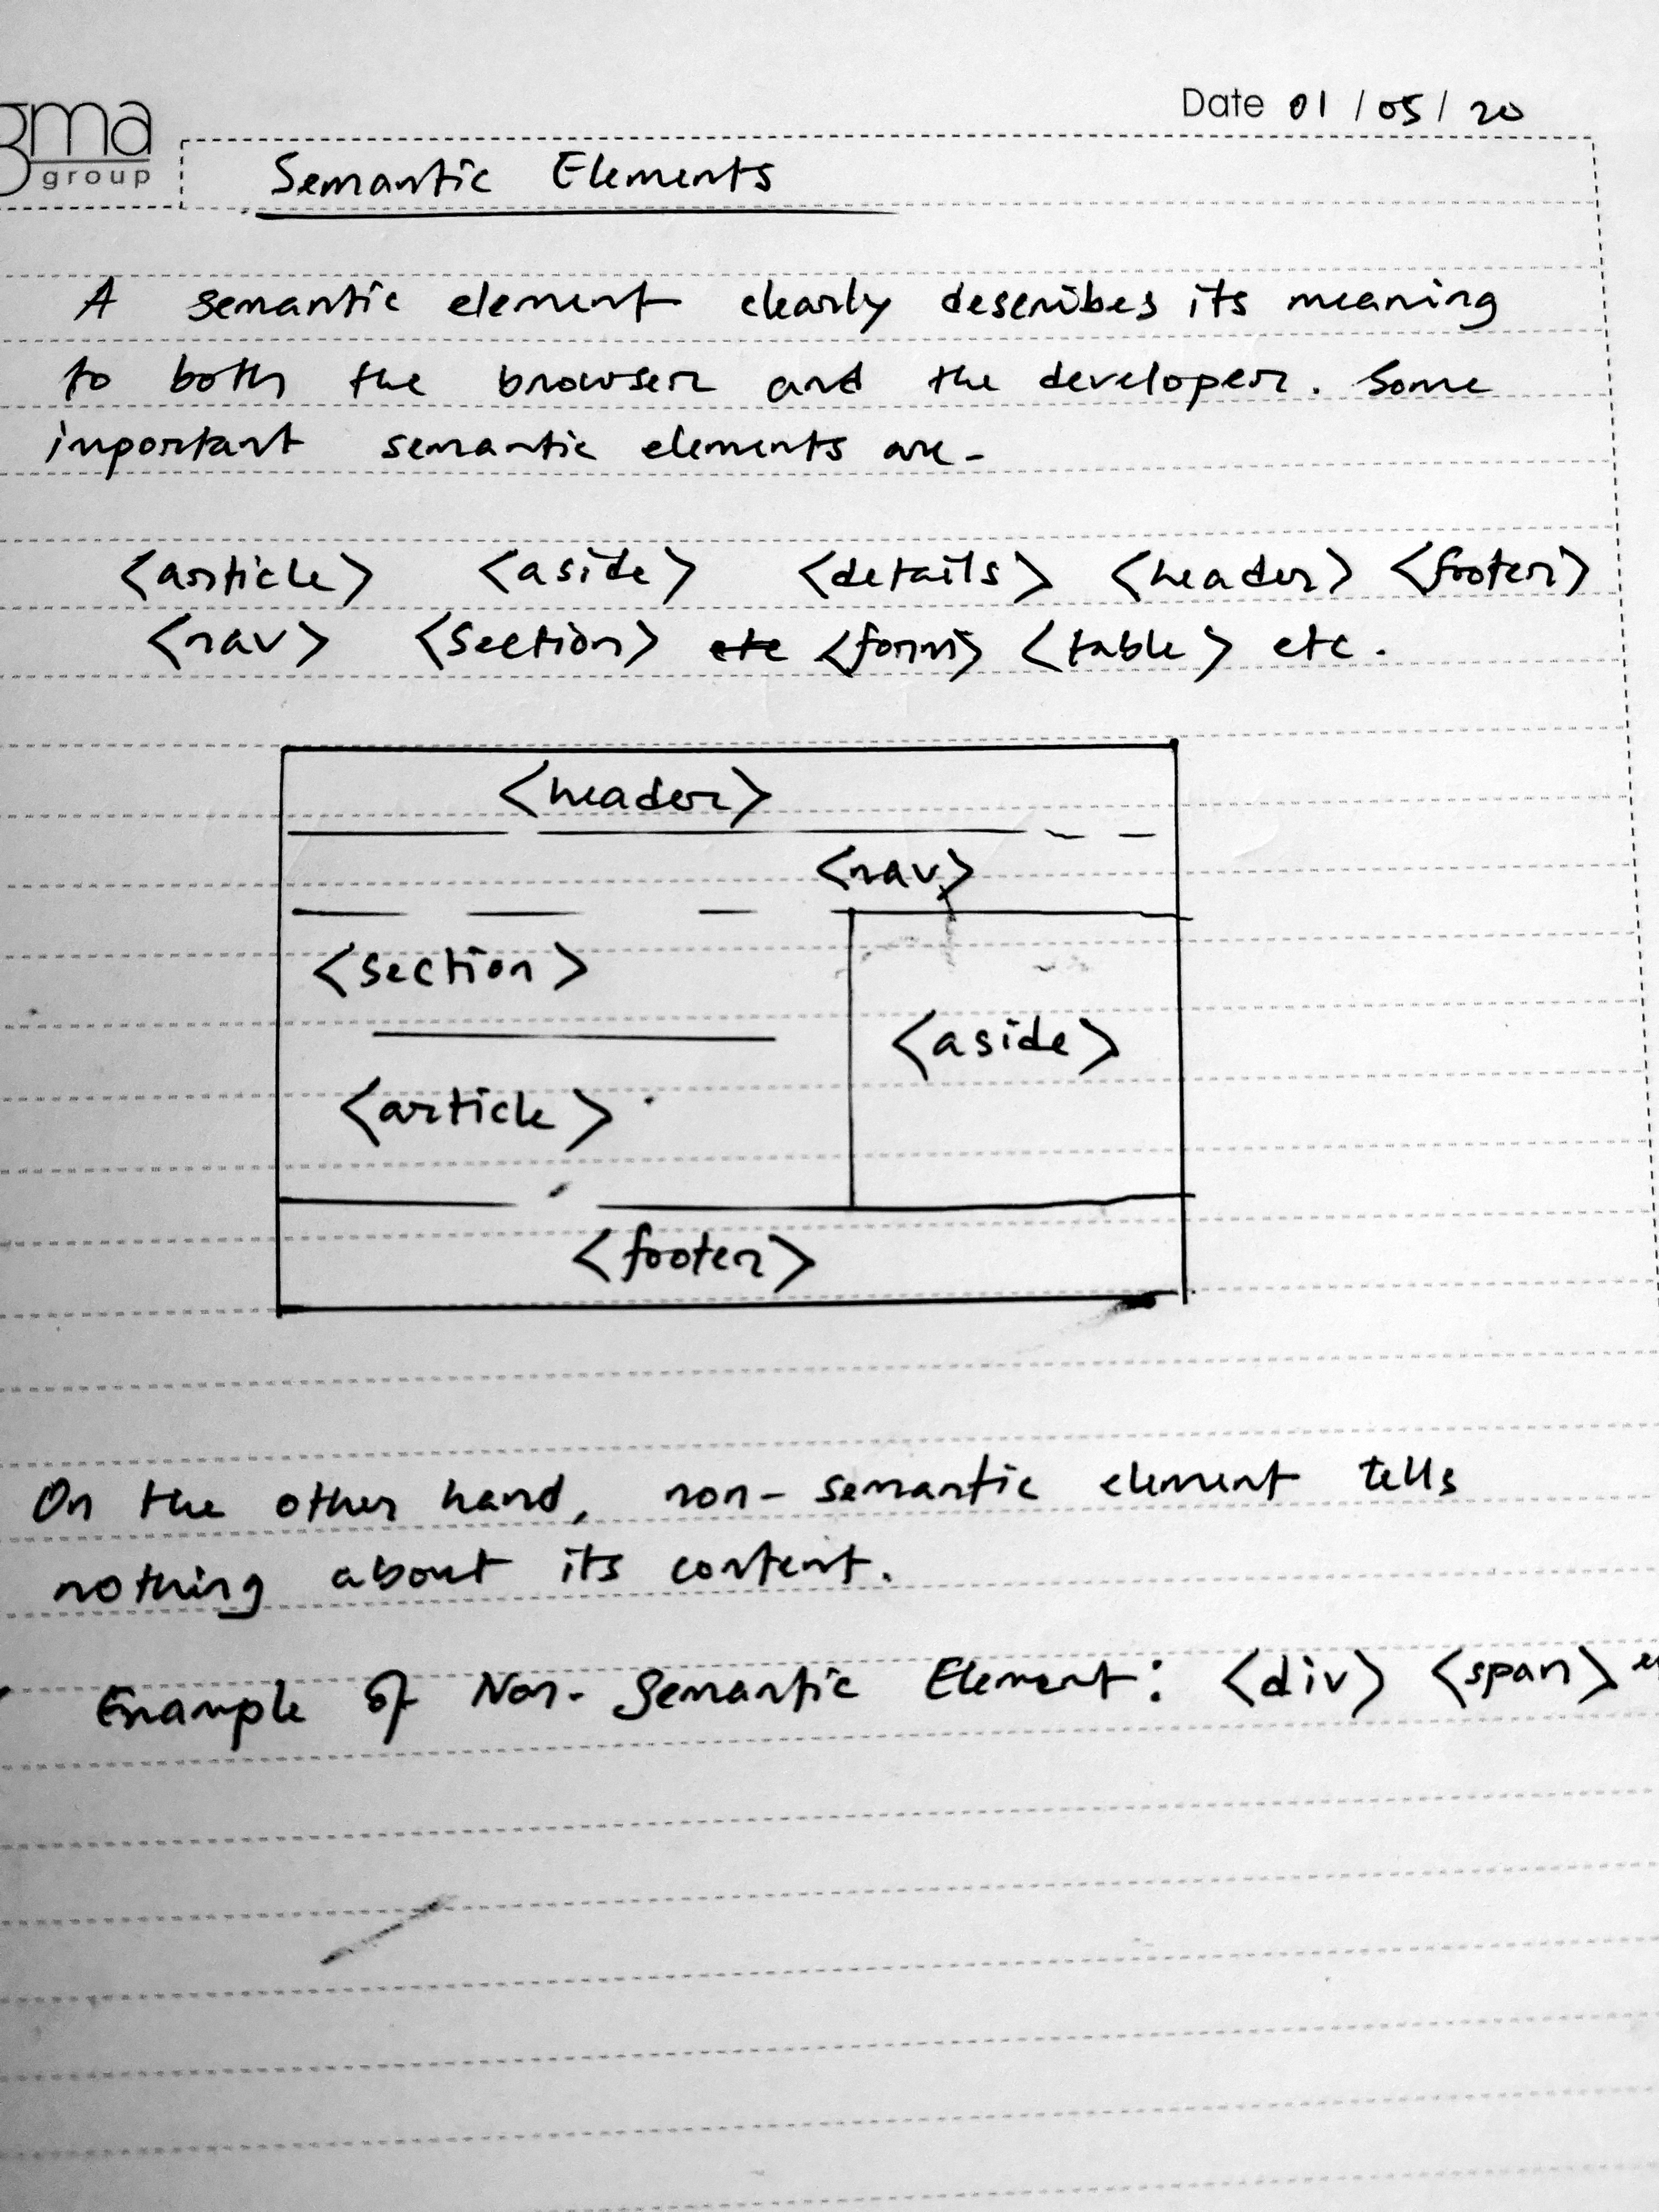 Date 01/05/20
group
Semantic Elements
A semantic element clearly describes its meaning
to both the browser and the developer. Some
important semantic elements are-
<article> <aside> <details> <header> <footer>
<nav> <section> etc <form> <table> etc.
<header>
<nav>
<section>
<aside>
<article>
<footer>
On the other hand, non-semantic element tells
nothing about its content.
Example of Non-Semantic Element: <div> <span>